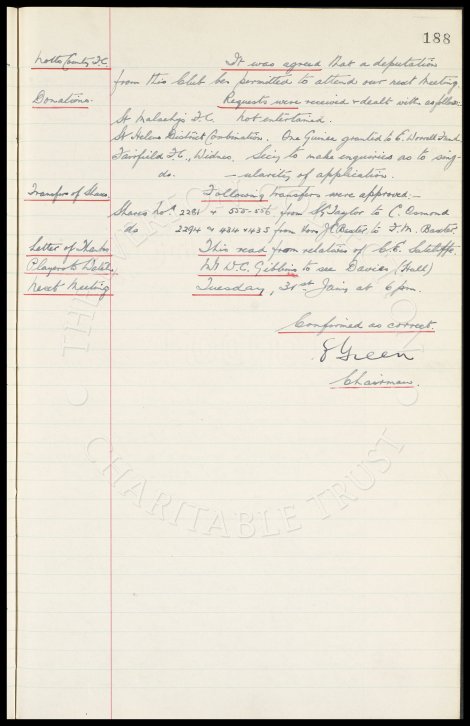 188
Notts County F.C. It was agreed that a deputation
from this Club be permitted to attend our next Meeting.
Donations. Requests were received & dealt with as follows:
St Malachy's F.C. Not entertained.
St Helens District Combination. One Guinea granted to E. Worrall Fund
Fairfield F.C., Widnes. Secy to make enquiries as to sing-
do. -ularity of application.
Transfers of Shares Following transfers were approved:-
Shares Nos. 2281 & 555-556, from Taylor to C. Osmond
do 2294 & 434 & 435 from Baxter to F. M. Baxter.
Letter of Thanks This read from relatives of C. E. Sutcliffe.
Players to Watch. Mr W. C. Gibbins to see Davies (Hull)
Next Meeting Tuesday, 31st Jany at 6 pm.
Confirmed as correct.
Green
Chairman.
CHARITABLE TRUST